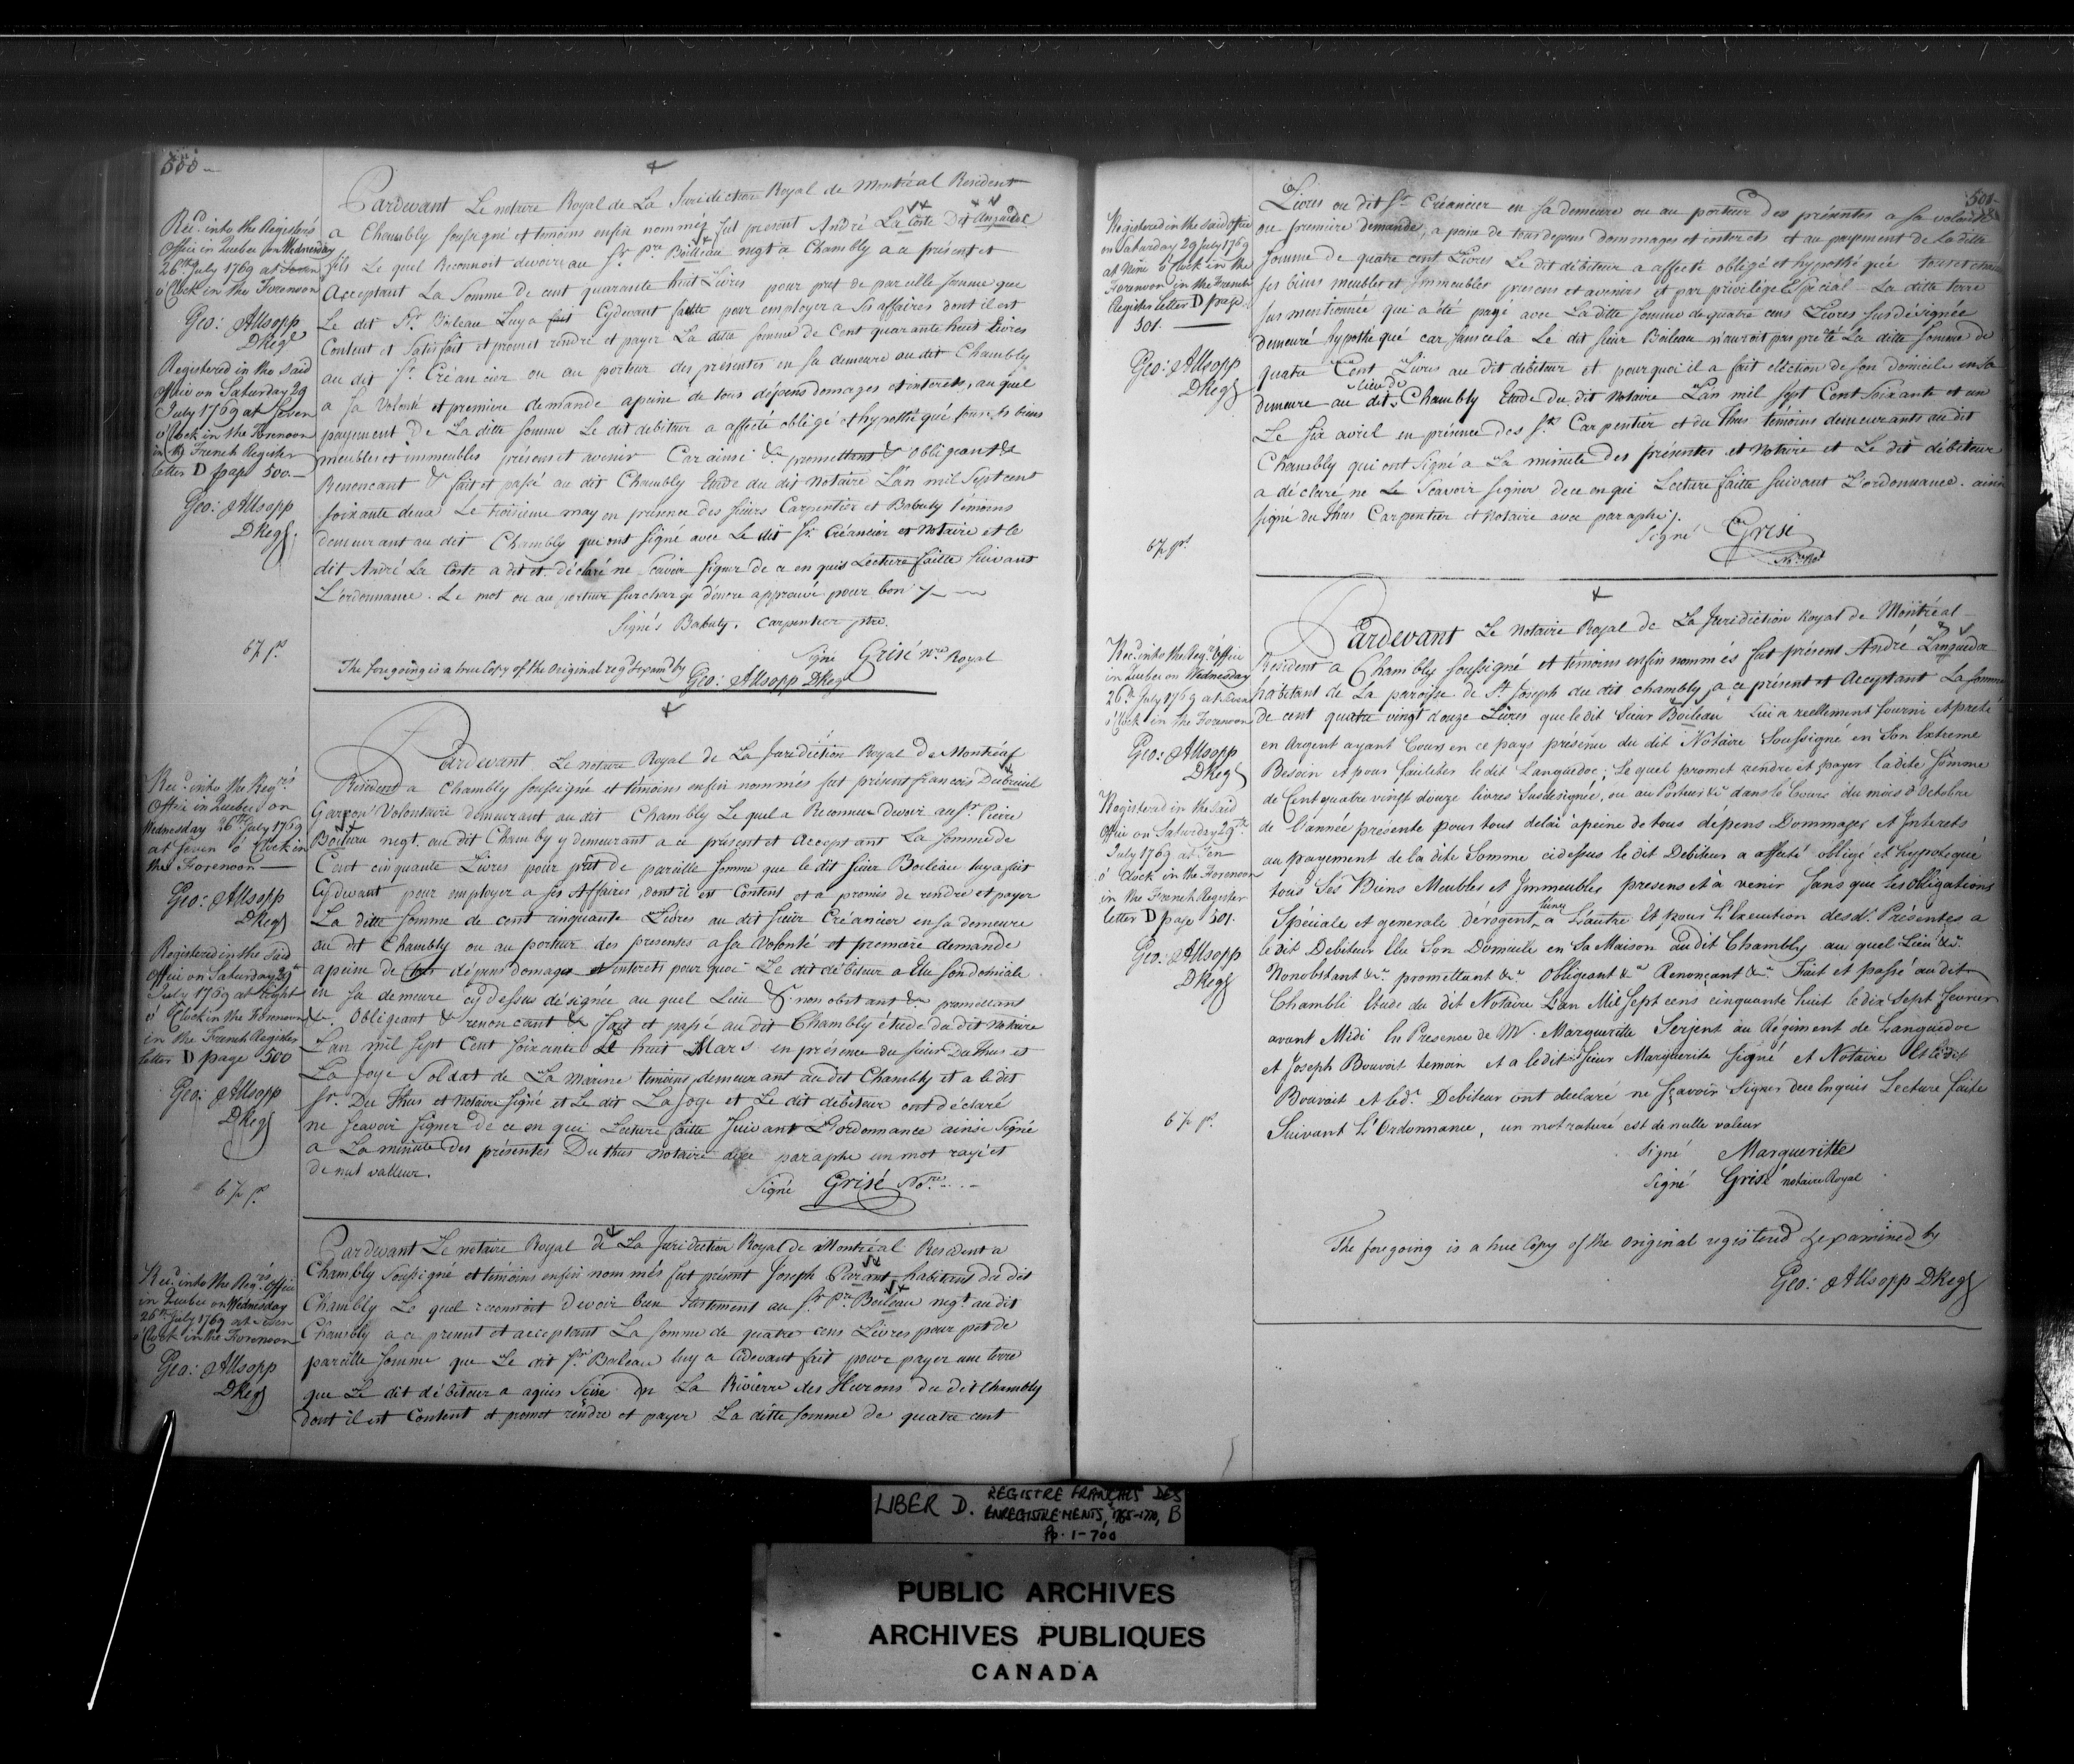 500
Pardevant Le notaire Royal de La Juridiction Royal de Montréal Resident
a Chambly sousigné et temoins enfin nommés fut present André La Coste Dit Languedoc
fils Le quel Reconnoit devoir au Sr. Pre Boilleau negt a Chambly a ce présent et
Acceptant La Somme De cent quarante huit Livres pour pret de pareille somme que
Le dit Sr. Boileau Luy a fait Cydevant faitte pour employer a Ses affaires dont il est
Content et Satisfait et promet rendre et payer La ditte somme de Cent quarante huit Livres
au dit Sr. Créancier ou au porteur des présentes en sa demeure au dit Chambly
a sa Volonté et premiere demande a peine de tous dépens domages et interets, au quel
payement De La ditte somme Le dit debiteur a affecté obligé et hypothéqué tous ses biens
meubles et immeubles présens et avenir Car ainsi &a promettant & obligeant &a
Renoncant & fait et passé au dit Chambly Etude du dit Notaire L'an mil Sept cent
soixante deux Le troisieme may en présence des sieurs Carpentier et Babuty témoins
demeurant au dit Chambly qui ont signé avec Le dit Sr. Créancier et Notaire et le
dit André La Coste a dit et déclaré ne Savoir signer de ce en quis Lecture faitte Suivant
L'ordonnance. Le mot ou au porteur surchargé d'encre approuvé pour bon
Signés Babuty. Carpentier ptre.
Signé Grisé nre Royal
The foregoing is a true Copy of the Original regd & examd by
Geo: Allsopp DReg
Recd. into the Register's
Office in Quebec on Wednesday
26th July 1769 at Seven
o'Clock in the Forenoon
Geo: Allsopp
DReg
Registered in the Said
Office on Saturday 29
July 1769 at Seven
o'Clock in the Forenoon
in the French Register
letter D page 500.
Geo: Allsopp
DReg.
Pardevant Le notaire Royal de La Juridiction Royal De Montréal
Resident a Chambly sousigné et témoins enfin nommés fut présent francois Dubreuil
Garçon Volontaire demeurant au dit Chambly Le quel a Reconnu Devoir au Sr. Pierre
Boileau negt. au dit Chamby y demeurant a ce présent et Acceptant La somme de
Cent cinquante Livres pour prêt de pareille somme que le dit sieur Boileau luy a fait
Cydevant pour employer a ses Affaires, dont il est Content et a promis de rendre et payer
La ditte somme de cent cinquante Livres au dit sieur Créancier en sa demeure
au dit Chambly ou au porteur des presentes a sa Volonté et premiere demande
a peine de tous dépens domages et interets pour quoi Le dit débiteur a Elu son domicile
en sa demeure cy dessus désignée au quel Lieu &c. non obstant &a promettant
&c. Obligeant & renoncant & fait et passé au dit Chambly étude du dit notaire
Lan mil sept Cent soixante Le huit Mars en présence du sieur Du Thus et
La Joye Soldat de La Marine temoins demeurant au dit Chambly et a le dit
Sr. Du Thus et Notaire signé et Le dit La Joye et Le dit debiteur ont déclaré
ne Scavoir signer de ce en qui Lecture faitte Suivant L'ordonnance ainsi Signé
a La minute des présentes Du thus Notaire avec paraphe un mot rayé et
de nul valleur.
Signé Grisé Nore.
Recd. into the Regr's
Office in Quebec on
Wednesday 26th July 1769
at Seven o'Clock in
the Forenoon
Geo: Allsopp
DReg
Registered in the Said
Office on Saturday 29th
July 1769 at Eight
o'Clock in the Forenoon
in the French Register
letter D page 500
Geo: Allsopp
DReg
Pardevant Le notaire Royal de La Juridiction Royal de Montréal Resident a
Chambly Sousigné et témoins enfin nommés fut présent Joseph Parant habitant du dit
Chambly Le quel reconnoit Devoir bien Justement au Sr Pre. Boileau negt. au dit
Chambly a ce present et acceptant La somme de quatre cens Livres pour pret de
pareille somme que Le dit Sr Boileau luy a cidevant fait pour payer une terre
que Le dit débiteur a aquis Scise Sur La Rivierre des Hurons du dit Chambly
dont il est Content et promet rendre et payer La ditte somme de quatre cent
Recd. into the Regrs. Office
in Quebec on Wednesday
26th July 1769 at Seven
o'Clock in the Forenoon
Geo: Allsopp
DReg
501
Livres au dit Sr. Créancier en sa demeure ou au porteur des présentes a sa volonté
ou premiere demande, a peine de tous depens dommages et interets et au payement de La ditte
somme de quatre cent Livres Le dit débiteur a affecté obligé et hypothéqué tous et chacun
ses biens meubles et Immeubles presens et avenirs et par privilége Espécial La ditte terre
sus mentionnée qui a été payé avec La ditte somme de quatre cens Livres sus désignée
demeuré hypothéqué car sans cela Le dit sieur Boileau n'auroit pas prêté La ditte somme de
quatre Cent Livres au dit debiteur et pourquoi il a fait eléction de son domicile en sa
demeure au dit lieu de Chambly Etude du dit Notaire L'an mil sept Cent Soixante et un
Le six avril en présence des Srs. Carpentier et du Thus témoins demeurants au dit
Chambly qui ont signé a La minute des présentes et Notaire et Le dit débiteur
a déclaré ne Le Scavoir signer de ce en qui Lecture faitte suivant L'ordonnance. ainsi
signé du Thus Carpentier et Notaire avec paraphe.
Signé Grisé
Nre. Rol
Registered in the said Office
on Saturday 29 July 1769
at Nine o'Clock in the
Forenoon in the French
Register letter D page
501.
Geo: Allsopp
DReg
Pardevant Le Notaire Royal de La Juridiction Royal de Montréal
Resident a Chambly soussigné et témoins enfin nommés fut présent André Languedoc
habitant de La paroisse de St. Joseph du dit chambly a ce présent et Acceptant La somme
de cent quatre vingt douze Livres que le dit Sieur Boileau Lui a reellement fourni et preté
en Argent ayant Cours en ce pays présence du dit Notaire Soussigné en Son Extreme
Besoin et pour faciliter le dit Languedoc; Le quel promet rendre et payer la dite Somme
de Cent quatre vingt douze livres Susdesignée, ou au Porteur &c dans le Cours du mois d'Octobre
de l'année présente pour tous delai apeine de tous dépens Dommages et Interets
au payement de la dite Somme cidessus le dit Debiteur a affecté obligé et hypotequé
tous Ses Biens Meubles et Immeubles presens et a venir sans que les obligations
Spéciale et generale dérogent l'une a L'autre Et pour L'Execution desd. Présentes a
le dit Debiteur Elu Son Domicile en Sa Maison au dit Chambly au quel Lieu &c.
Nonobstant &c. promettant &c. Obligeant &c Renonçant &c. Fait et passé au dit
Chambli Etude du dit Notaire L'an Mil Sept cens cinquante huit le dix Sept fevrier
avant Midi En Presence de M. Marguerite Serjent au Régiment de Languedoc
et Joseph Bouvoit temoin et a ledit Sieur Marguerite signé et Notaire Et le dit
Bouvoit et led. Debiteur ont declaré ne sçavoir Signer de ce Enquis Lecture faite
Suivant L'Ordonnance, un mot raturé est de nulle valeur
Signé Margueritte
Signé Grisé notaire Royal
The foregoing is a true Copy of the Original registered & examined by
Geo: Allsopp DReg
Recd. into the Regrs. Office
in Quebec on Wednesday
26th July 1769 at Seven
o'Clock in the Forenoon
Geo: Allsopp
DReg
Registered in the Said
Office on Saturday 29th
July 1769 at Ten
o'Clock in the Forenoon
in the French Register
letter D page 501.
Geo: Allsopp
DReg
LIBER D. REGISTRE FRANÇAIS DES
ENREGISTREMENTS, 1765-1770, B
Pp. 1-700
PUBLIC ARCHIVES
ARCHIVES PUBLIQUES
CANADA